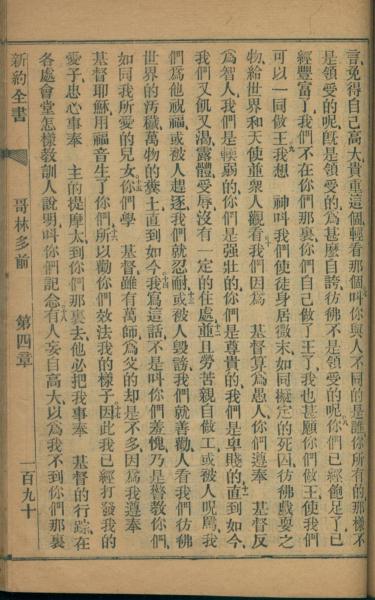 言免得自己高大貴重這個輕看那個叫你與人不同的是誰你所有的那樣不
是領受的呢旣是領受的爲甚麼自誇彷彿不是領受的呢你們已經飽足了已
經豐富了我們不在你們那裏你們自己做了王了我也甚願你們做王使我們
可以一同做王我想 神叫我們使徒身居微末如同擬定的死囚彷彿戲耍之
物給世界和天使並衆人觀看我們因爲 基督算爲愚人你們遵奉 基督反
爲智人我們是輭弱的你們是强壯的你們是尊貴的我們是卑賤的直到如今
我們又飢又渴露體受辱沒有一定的住處並且勞苦親自做工或被人呪罵我
們爲他祝福或被人趕逐我們就忍耐或被人毀謗我們就善勸人看我們彷彿
世界的汚穢萬物的糞土直到如今我寫這話不是叫你們羞愧乃是警教你們
如同我所愛的兒女你們學 基督雖有萬師爲父的却是不多因爲我遵奉
基督耶穌用福音生了你們所以勸你們效法我的樣子因此我已經打發我的
愛子忠心事奉 主的提摩太到你們那裏去他必把我事奉 基督的行踪在
各處會堂怎樣敎訓人說明叫你們記念有人妄自高大以爲我不到你們那裏
新約全書 哥林多前 第四章 一百九十